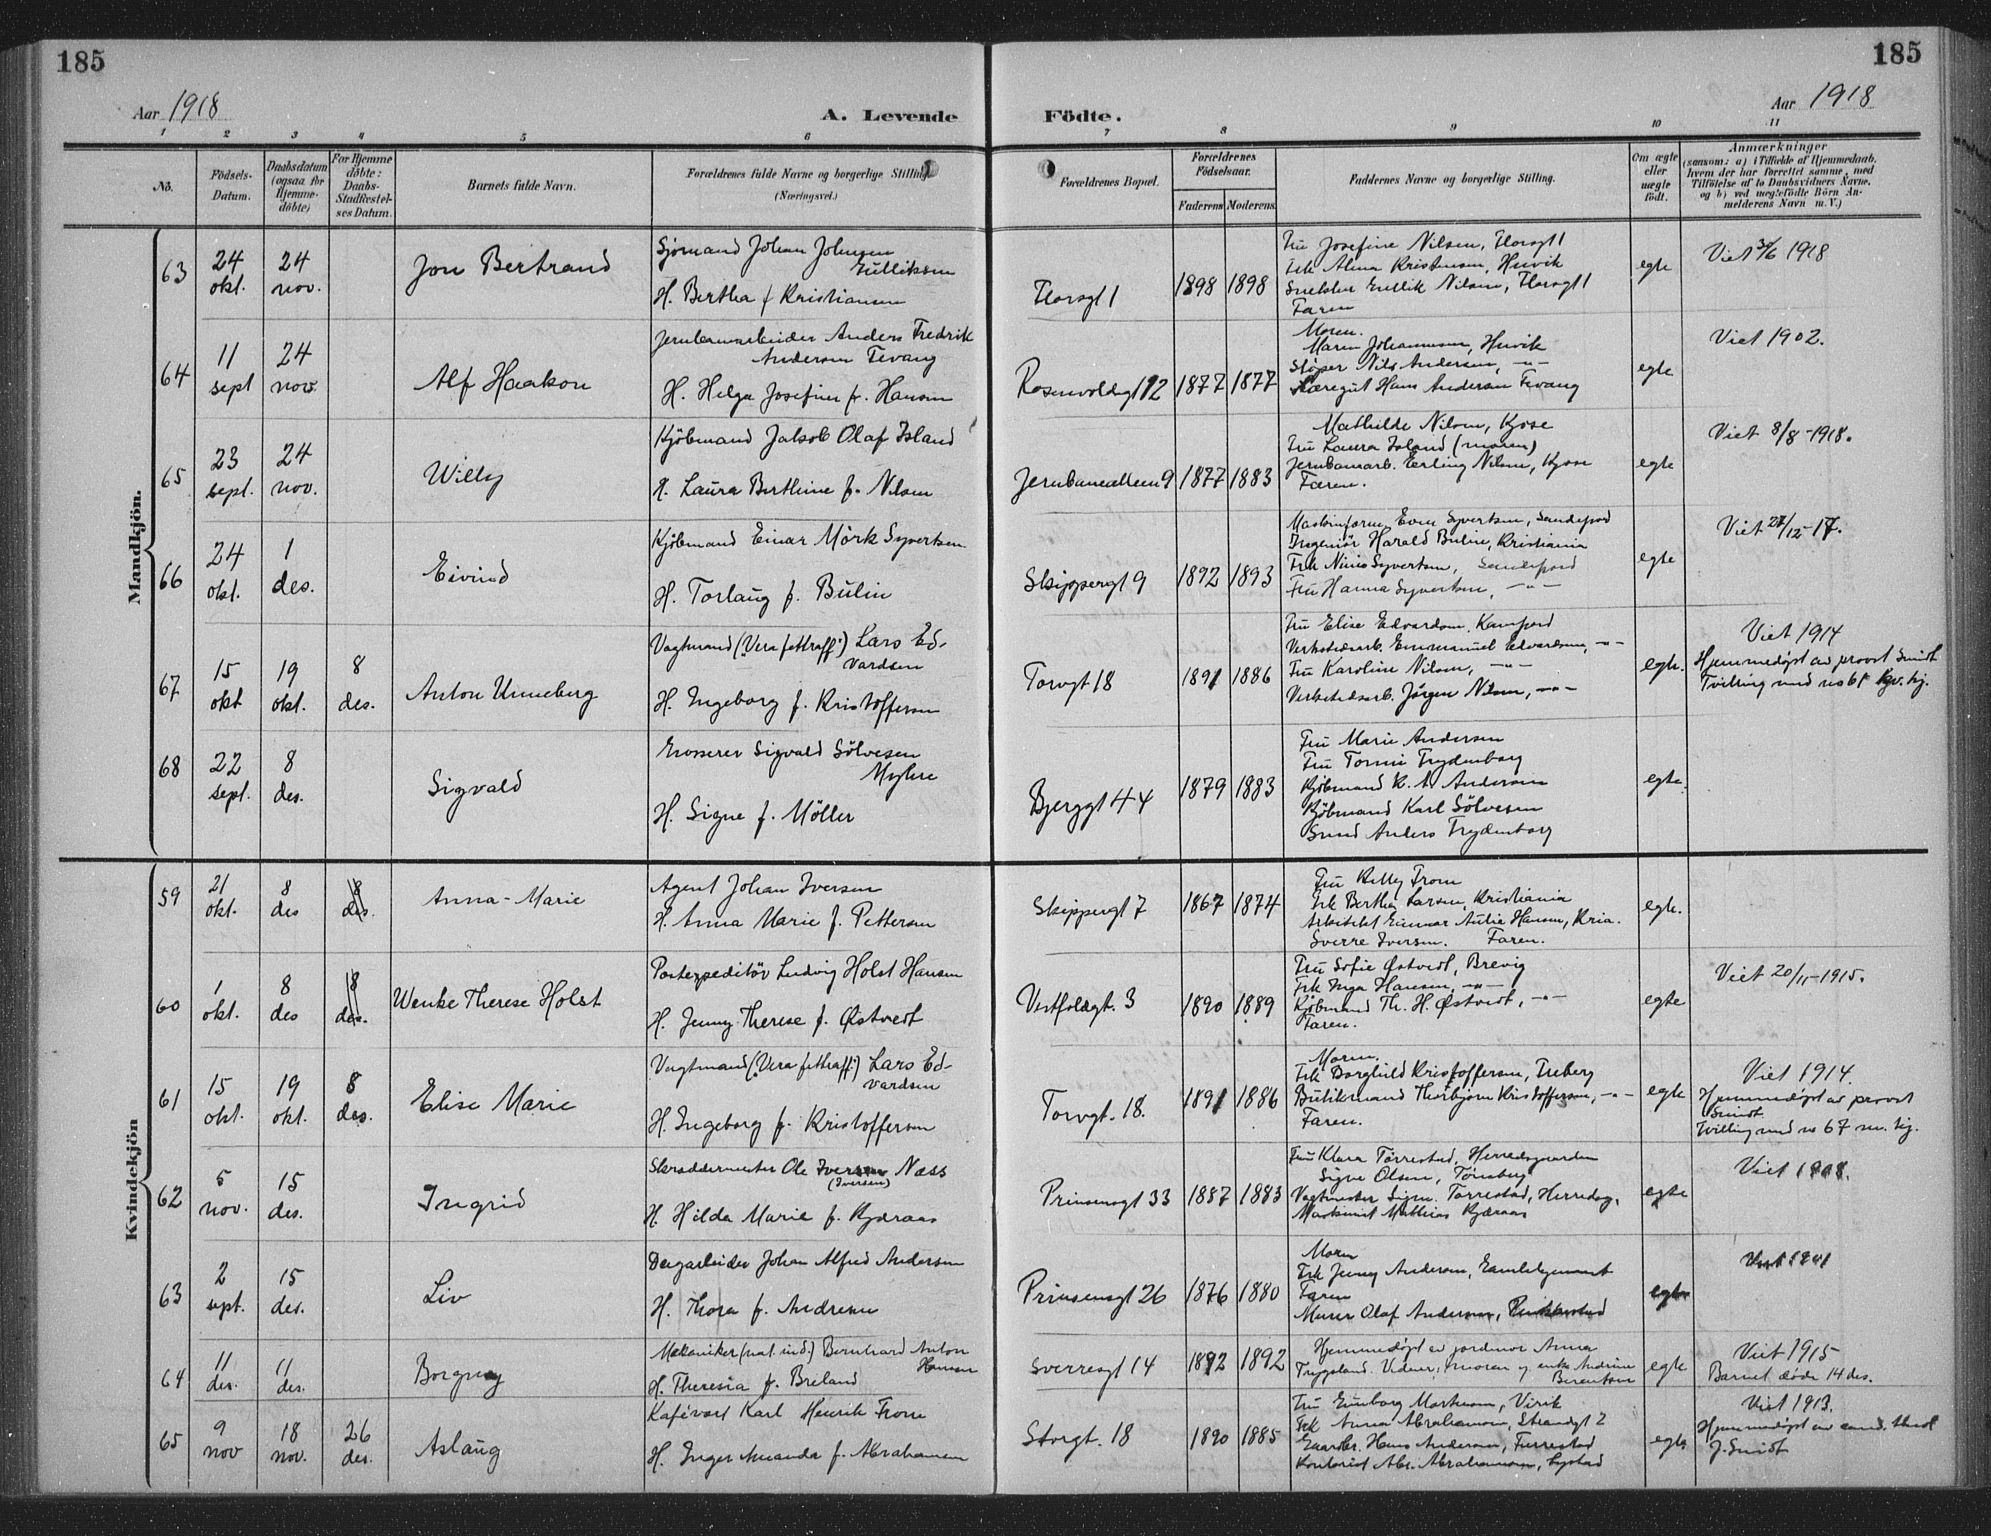 185
185
Aar 1918
A. Levende
Födte.
Aar 1918
1 2 3 4 5 6 7 8 9 10 11
No.
Födsels-Datum.
Daabsdatum (ogsaa for Hjemme-döbte)
For Hjemme döbte: Daabs-Stadfæstel-ses Datum.
Barnets fulde Navn.
Forældrenes fulde Navne og borgerlige Stilling
(Næringsvei.)
Forældrenes Bopæl.
Forældrenes Födselsaar.
Faderens Moderens
Faddernes Navne og borgerlige Stilling.
Om ægte eller uægte födt.
Anmærkninger
(saasom: a) i Tilfælde af Hjemmedaab, hvem der har forrettet samme, med Tilföielse af to Daabsvidners Navne, og b) ved uægtefödte Börn An-melderens Navn m. V.)
Mandkjön.
63 24 okt. 24 nov. Jon Bertrand
Sjömand Johan Johnsen Gulliksen
H. Bertha f Kristiansen
Storgt 1 1898 1898
Fru Josefine Nilsen, Storgt 1
Frk Alma Kristensen, Husvik
Snekker Gullik Nilsen, Storgt 1
Faren
egte Viet 30/6 1918
64 11 sept 24 nov. Alf Haakon
Jernbanearbeider Anders Fredrik
Andersen Tevang
H. Helga Josefine f. Hansen
Rosenvoldsgt 12 1877 1877
Moren.
Maren Johannesen, Husvik
Støper Nils Andersen, -"-
Læregut Hans Andersen Tevang
egte Viet 1902.
65 23 sept. 24 nov. Willy
Kjöbmand Jakob Olaf Island
H. Laura Berthine f. Nilsen
Jernbanealleen 9 1877 1883
Mathilde Nilsen, Kjose
Fru Laura Island (moren)
Jernbanearb. Erling Nilsen, Kjose
Faren.
egte Viet 8/8-1918.
66 24 okt. 1 des. Eivind
Kjöbmand Einar Mörk Syvertsen
H. Torlaug f. Bulin
Skippergt 9 1892 1893
Maskinform. Even Syvertsen, Sandefjord
Ingeniör Harald Bulin, Kristiania
Frk Nini Syvertsen, Sandefjord
Fru Hanna Syvertsen, -"-
egte Viet 27/12-17.
67 15 okt 19 okt. 8 des. Anton Unneberg
Vagtmand (Vera fettraff.) Lars Ed-
vardsen
H. Ingeborg f. Kristoffersen
Torvgt 18 1891 1886
Fru Elise Edvardsen,
Verkstedsarb. Emmanuel Edvardsen, -"-
Fru Karoline Nilsen, -"-
Verkstedsarb. Jörgen Nilsen, -"-
egte. Viet 1914
Hjemmedøpt av provst Smidt
Tvilling med no 61 kv. kj.
68 22 sept. 8 des. Sigvald
Grosserer Sigvald Sölvesen
Myhre
H. Signe f. Möller
Bjerggt 44 1879 1883
Fru Marie Andersen
Fru Tomine Frydenborg
Kjöbmand K. A. Andersen
Kjöbmand Karl Sölvesen
Smed Anders Frydenborg
egte.
Kvindekjön
59 21 okt. 8 des 8 des. Anna-Marie
Agent Johan Iversen
H. Anna Marie f. Pettersen
Skippergt 7 1867 1874
Fru Kitty From
Frk Bertha Larsen, Kristiania
Arkitekt Gunnar Hansen, Kria.
Sverre Iversen. Faren.
egte.
60 1 okt. 8 des 8 des. Wenke Therese Holst
Postexpeditör Ludvig Holst Hansen
H. Jenny Therese f. Østvedt
Vestfoldgt. 3 1890 1889
Fru Sofie Østvedt, Brevig
Frk Inga Hansen, -"-
Kjöbmand Th. H. Østvedt, -"-
Faren.
egte Viet 20/11-1915.
61 15 okt. 19 okt. 8 des. Elise Marie
Vagtmand (Vera fettraff.) Lars Ed-
vardsen
H. Ingeborg f. Kristoffersen
Torvgt. 18. 1891 1886
Moren.
Frk Borghild Kristoffersen, Freberg
Butikmand Thorbjørn Kristoffersen, -"-
Faren.
egte Viet 1914.
Hjemmedøpt av provst
Smidt
Tvilling med no 67 m. kj.
62 5 nov. 15 des. Ingrid
Skræddermester Ole Iversen Næss
(Iversen)
H. Hilda Marie f. Kjæraas
Prinsensgt 33 1887 1883
Fru Klara Torrestad, Herredsgaarden
Signe Olsen, Tønsberg
Vagtmester Sigm. Torrestad, Herredsg.
Maskinist Mathias Kjæraas
egte Viet 1908.
63 2 sept. 15 des. Liv
Dagarbeider Johan Alfred Andersen
H. Thora f. Andresen
Prinsensgt 26 1876 1880
Moren
Frk Jenny Andersen, Gamlebyenamt
Faren
Murer Olaf Andersen,
egte Viet 1901
64 11 des. 11 des. Borgny
Mekaniker (nat. ind.) Bernhard Anton
Hansen
H. Theresia f. Breland
Sverresgt 14 1892 1892
Hjemmedøpt av jordmor Anna
Trygsland. Vidner: moren og enke Andrine
Berentsen
egte Viet 1915
Barnet døde 14 des.
65 9 nov 18 nov. 26 des. Aslaug
Kafévert Karl Henrik From
H. Inger Amanda f. Abrahamsen
Storgt. 18 1890 1885
Fru Gunborg Martinsen, Virik
Frk Anna Abrahamsen, Strandgt 2
Gaardbr. Hans Andersen, Furrestad
Kontorist Alb. Abrahamsen,
egte Viet 1913.
Hjemmedøpt av cand. theol
J. Smidt